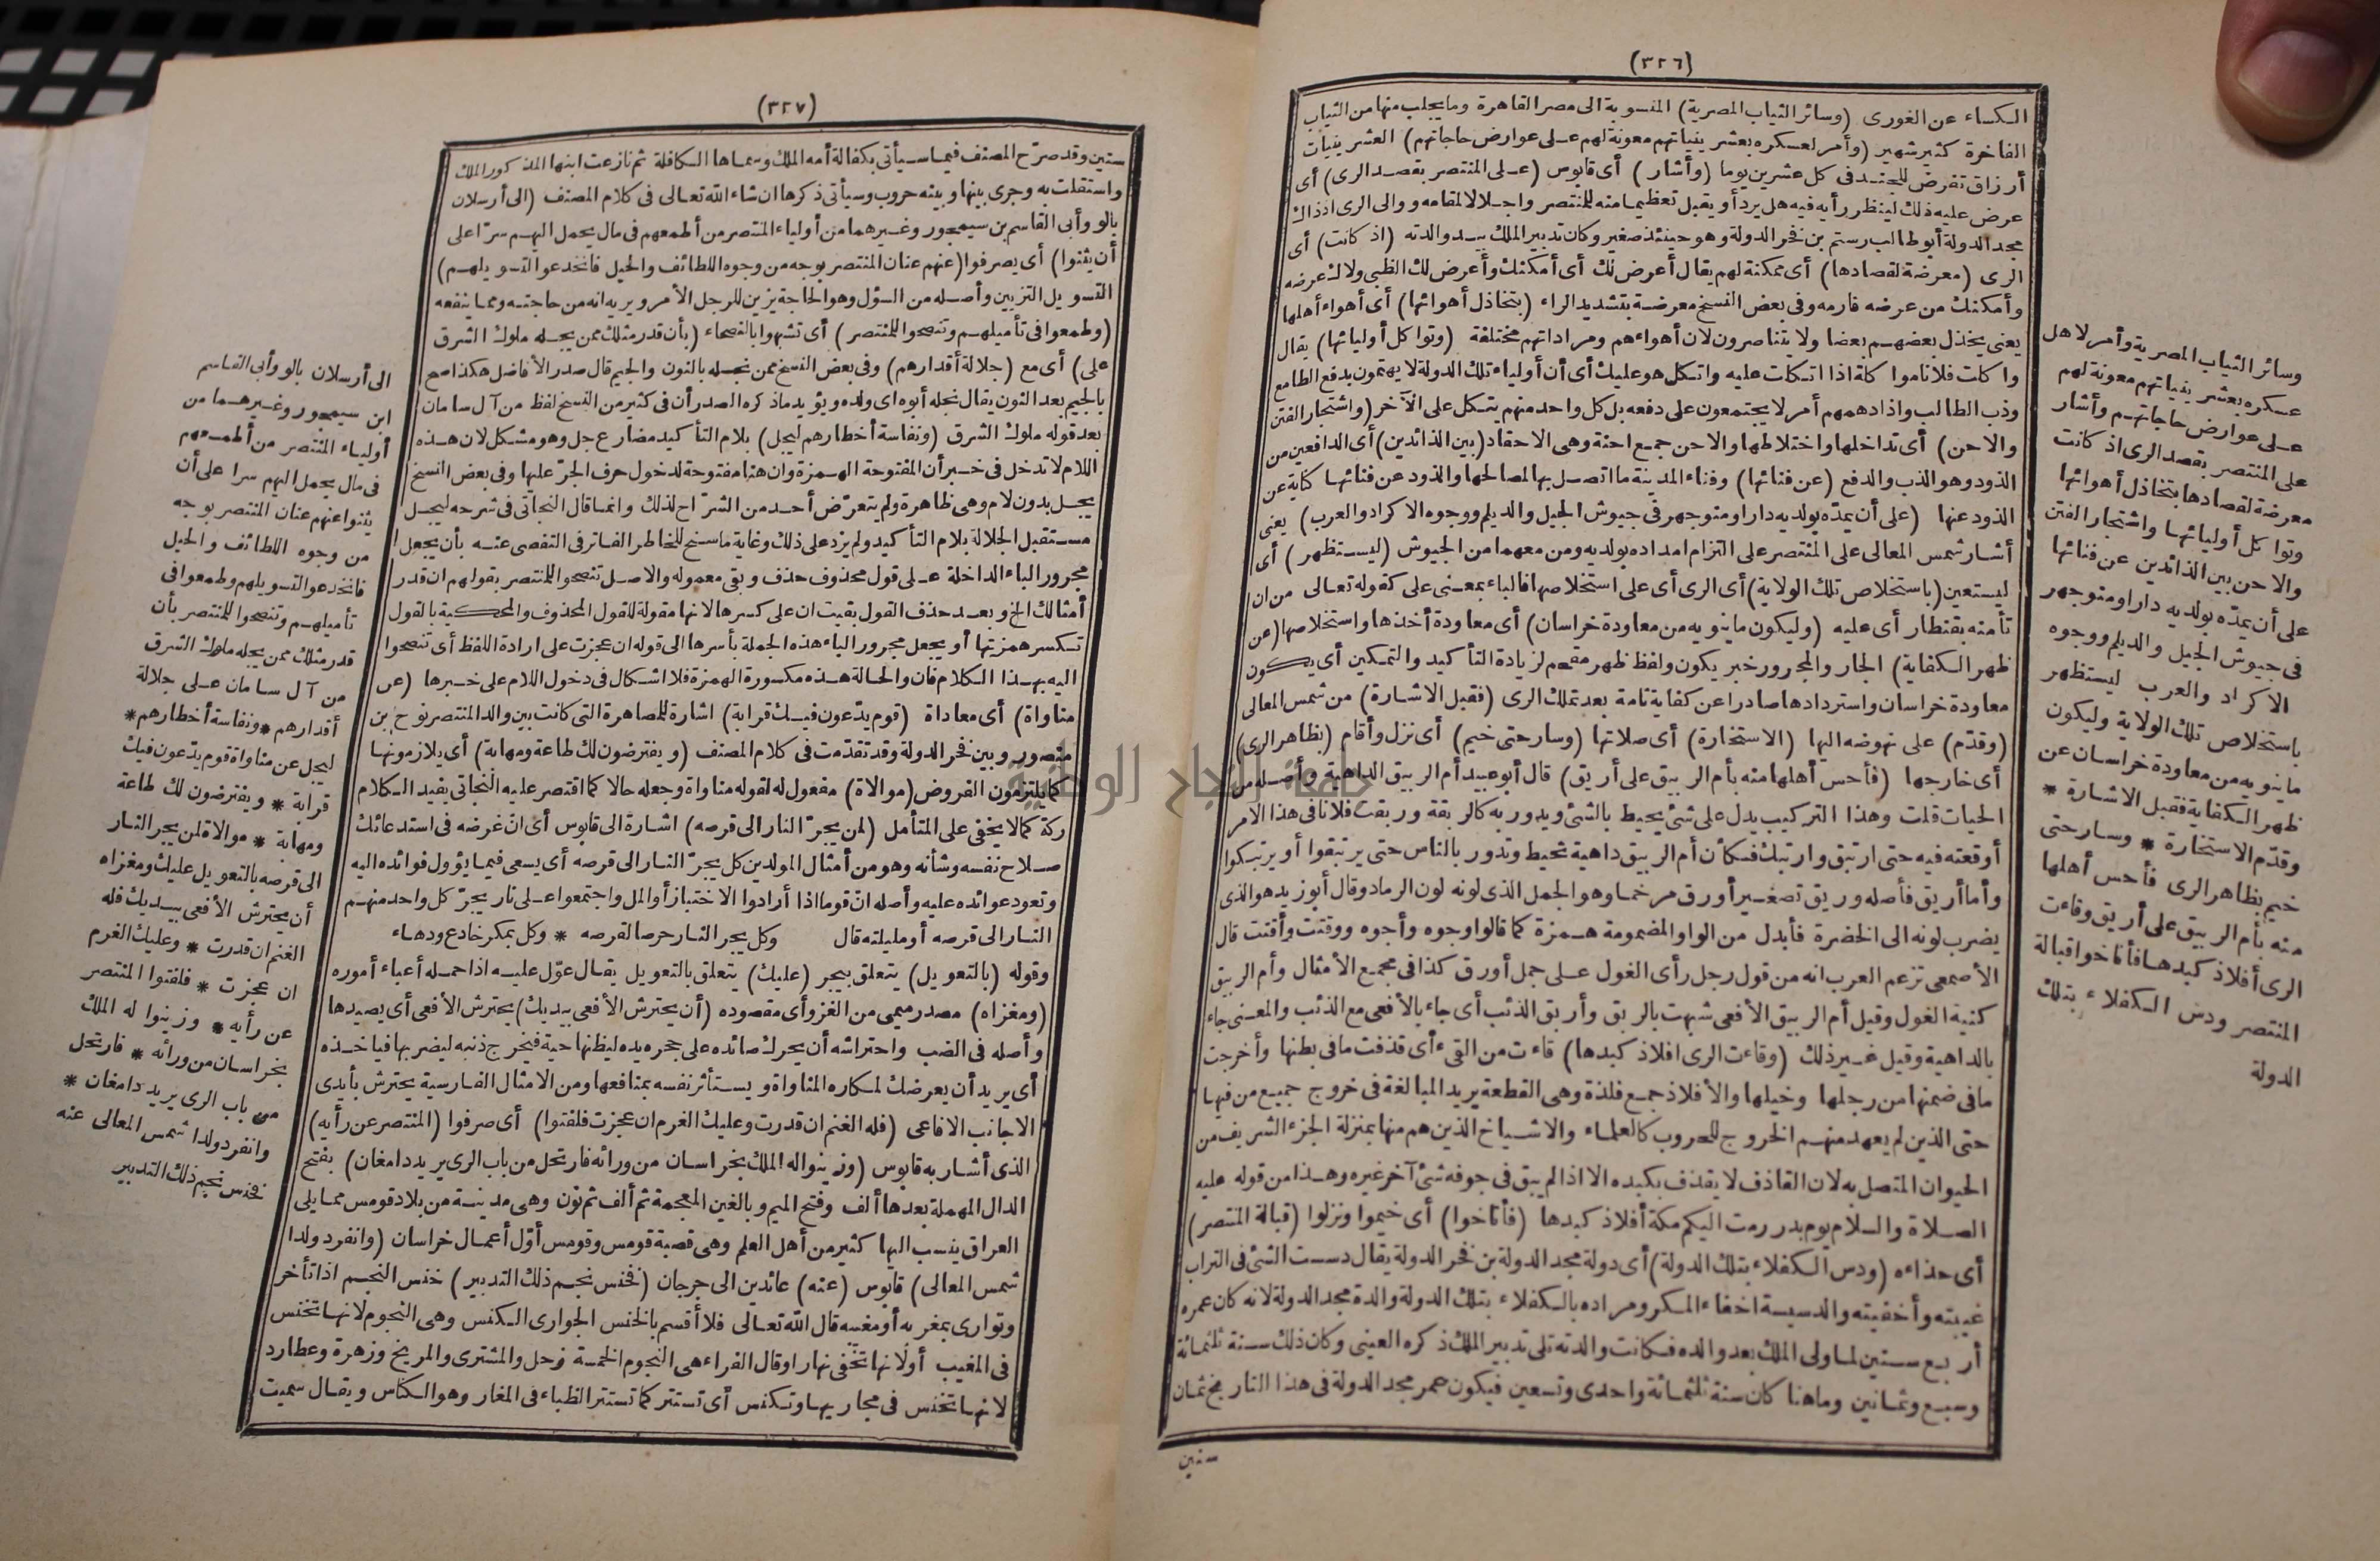 (٣٢٦)
الكساء عن الغورى (وسائر الثياب المصرية) المنسوبة الى مصر القاهرة وما يجلب منها من الثياب
الفاخرة كثير شهير (وأمر لعسكره بعشر ينياتهم معونة لهم على عوارض حاجاتهم) العشر ينيات
أرزاق تفرض للجند فى كل عشرين يوما (وأشار) أى قابوس (على المنتصر بقصد الرى) أى
عرض عليه ذلك لينظر رأيه فيه هل يرد أو يقبل تعظيما منه للمنتصر واجلالا لمقامه ووالى الرى اذ ذاك
مجد الدولة أبو طالب رستم بن فخر الدولة وهو حينئذ صغير وكان تدبير الملك بيد والدته (اذ كانت) أى
الرى (معرضة لقصادها) أى ممكنة لهم يقال أعرض لك أى أمكنك وأعرض لك الظبى ولاك عرضه
وأمكنك من عرضه فارمه وفى بعض النسخ معرضة بتشديد الراء (بتخاذل أهوائها) أى أهواء أهلها
يعنى يخذل بعضهم بعضا ولا يتناصرون لان أهواءهم ومراداتهم مختلفة (وتواكل أوليائها) يقال
واكلت فلانا مواكلة اذا اتكلت عليه واتكل هو عليك أى أن أولياء تلك الدولة لا يهتمون بدفع الطامع
وذب الطالب واذا دهمهم أمر لا يجتمعون على دفعه بل كل واحد منهم يتكل على الآخر (واشتجار الفتن
والاحن) أى تداخلها واختلاطها والاحن جمع احنة وهى الاحقاد (بين الذائدين) أى الدافعين من
الذود وهو الذب والدفع (عن فنائها) وفناء المدينة ما اتصل بها لمصالحها والذود عن فنائها كناية عن
الذود عنها (على أن يمدّه بولديه دارا ومنوجهر فى جيوش الجيل والديلم ووجوه الاكراد والعرب) يعنى
أشار شمس المعالى على المنتصر على التزام امداده بولديه ومن معهما من الجيوش (ليستظهر) أى
ليستعين (باستخلاص تلك الولاية) أى الرى أى على استخلاصها فالباء بمعنى على كقوله تعالى من ان
تأمنه بقنطار أى عليه (وليكون ما ينويه من معاودة خراسان) أى معاودة أخذها واستخلاصها (عن
ظهر الكفاية) الجار والمجرور خبر يكون ولفظ ظهر مقحم لزيادة التأكيد والتمكين أى يكون
معاودة خراسان واستردادها صادرا عن كفاية تامة بعد تملك الرى (فقبل الاشارة) من شمس المعالى
(وقدّم) على نهوضه اليها (الاستخارة) أى صلاتها (وسار حتى خيم) أى نزل وأقام (بظاهر الرى)
أى خارجها (فأحس أهلها منه بأم الربيق على أريق) قال أبو عبيد أم الربيق الداهية وأصله من
الحيات قلت وهذا التركيب يدل على شئ يحيط بالشئ ويدور به كالربقة وربقت فلانا فى هذا الامر
أوقعته فيه حتى ارتبق وارتبك فكأن أم الربيق داهية تحيط وتدور بالناس حتى يرتبقوا أو يرتبكوا
وأما أريق فأصله وريق تصغير أورق مرخما وهو الجمل الذى لونه لون الرماد وقال أبو زيد هو الذى
يضرب لونه الى الخضرة فأبدل من الواو المضمومة همزة كما قالوا وجوه وأجوه ووقتت وأقتت قال
الأصمعى تزعم العرب انه من قول رجل رأى الغول على جمل أورق كذا فى مجمع الأمثال وأم الربيق
كنية الغول وقيل أم الربيق الأفعى شبهت بالربق وأريق الذئب أى جاء بالأفعى مع الذئب والمعنى جاء
بالداهية وقيل غير ذلك (وقاءت الرى افلاذ كبدها) قاءت من القىء أى قذفت ما فى بطنها وأخرجت
ما فى ضمنها من رجلها وخيلها والأفلاذ جمع فلذة وهى القطعة يريد المبالغة فى خروج جميع من فيها
حتى الذين لم يعهد منهم الخروج للحروب كالعلماء والاشياخ الذين هم منها بمنزلة الجزء الشريف من
الحيوان المتصل به لان القاذف لا يقذف بكبده الا اذا لم يبق فى جوفه شئ آخر غيره وهذا من قوله عليه
الصلاة والسلام يوم بدر رمت اليكم مكة أفلاذ كبدها (فأناخوا) أى خيموا ونزلوا (قبالة المنتصر)
أى حذاءه (ودس الكفلاء بتلك الدولة) أى دولة مجد الدولة بن فخر الدولة يقال دسست الشئ فى التراب
غيبته وأخفيته والدسيسة اخفاء المكر ومراده بالكفلاء بتلك الدولة والدة مجد الدولة لانه كان عمره
أربع سنين لما ولى الملك بعد والده فكانت والدته تلى تدبير الملك ذكره العينى وكان ذلك سنة ثلثمائة
وسبع وثمانين وما هنا كان سنة ثلثمائة واحدى وتسعين فيكون عمر مجد الدولة فى هذا التاريخ ثمان
سنين
وسائر الثياب المصرية وأمر لاهل
عسكره بعشر ينياتهم معونة لهم
على عوارض حاجاتهم وأشار
على المنتصر بقصد الرى اذ كانت
معرضة لقصادها بتخاذل أهوائها
وتواكل أوليائها واشتجار الفتن
والاحن بين الذائدين عن فنائها
على أن يمدّه بولديه دارا ومنوجهر
فى جيوش الجيل والديلم ووجوه
الاكراد والعرب ليستظهر
باستخلاص تلك الولاية وليكون
ما ينويه من معاودة خراسان عن
ظهر الكفاية فقبل الاشارة *
وقدّم الاستخارة * وسار حتى
خيم بظاهر الرى فأحس أهلها
منه بأم الربيق على أريق وقاءت
الرى أفلاذ كبدها فأناخوا قبالة
المنتصر ودس الكفلاء بتلك
الدولة
(٣٢٧)
سنين وقد صرّح المصنف فيما سيأتى بكفالة أمه الملك وسماها الكافلة ثم نازعت ابنها المذكور الملك
واستقلت به وجرى بينها وبينه حروب وسيأتى ذكرها ان شاء الله تعالى فى كلام المصنف (الى أرسلان
بالو وأبى القاسم بن سيمجور وغيرهما من أولياء المنتصر من أطمعهم فى مال يحمل اليهم سرّا على
أن يثنوا) أى يصرفوا (عنهم عنان المنتصر بوجه من وجوه اللطائف والحيل فانخدعوا لتسويلهم)
التسويل التزيين وأصله من السؤل وهو الحاجة يزين للرجل الأمر ويريه انه من حاجته ومما ينفعه
(وطمعوا فى تأميلهم وتنصحوا للمنتصر) أى تشبهوا بالنصحاء (بأن قدر مثلك ممن يجله ملوك الشرق
على) أى مع (جلالة أقدارهم) وفى بعض النسخ ممن نجله بالنون والجيم قال صدر الأفاضل هكذا صح
بالجيم بعد النون يقال نجله أبوه اى ولده ويؤيد ما ذكره الصدر أن فى كثير من النسخ لفظ من آل سامان
بعد قوله ملوك الشرق (ونفاسة أخطارهم ليجل) بلام التأكيد مضارع جل وهو مشكل لان هذه
اللام لا تدخل فى خبر أن المفتوحة الهمزة وان هنا مفتوحة لدخول حرف الجرّ عليها وفى بعض النسخ
يجل بدون لام وهى ظاهرة ولم يتعرّض أحد من الشرّاح لذلك وانما قال النجاتى فى شرحه ليجل
مستقبل الجلالة بلام التأكيد ولم يزد على ذلك وغاية ما سنح للخاطر الفاتر فى التفصى عنه بأن يجعل
مجرور الباء الداخلة على قول محذوف حذف وبقى معموله والاصل تنصحوا للمنتصر بقولهم ان قدر
أمثالك الخ وبعد حذف القول بقيت ان على كسرها لانها مقولة للقول المحذوف والمحكية بالقول
تكسر همزتها أو يجعل مجرور الباء هذه الجملة بأسرها الى قوله ان عجزت على ارادة اللفظ أى تنصحوا
اليه بهذا الكلام فان والحالة هذه مكسورة الهمزة فلا اشكال فى دخول اللام على خبرها (عن
مناواة) أى معاداة (قوم يدّعون فيك قرابة) اشارة للمصاهرة التى كانت بين والد المنتصر نوح بن
منصور وبين فخر الدولة وقد تقدّمت فى كلام المصنف (ويفترضون لك طاعة ومهابة) أى يلازمونها
كما يلتزمون الفروض (موالاة) مفعول له لقوله مناواة وجعله حالا كما اقتصر عليه النجاتى يفيد الكلام
ركة كما لا يخفى على المتأمل (لمن يجرّ النار الى قرصه) اشارة الى قابوس أى انّ غرضه فى استدعائك
صلاح نفسه وشأنه وهو من أمثال المولدين كل يجرّ النار الى قرصه أى يسعى فيما يؤول فوائده اليه
وتعود عوائده عليه وأصله انّ قوما اذا أرادوا الاختباز أو المل واجتمعوا على نار يجرّ كل واحد منهم
النار الى قرصه أو مليلته قال وكل يجر النار حرصا لقرصه * وكل بمكر خادع ودهاء
وقوله (بالتعويل) يتعلق بيجر (عليك) يتعلق بالتعويل يقال عوّل عليه اذا حمله أعباء أموره
(ومغزاه) مصدر ميمى من الغزو أى مقصوده (أن يحترش الأفعى بيديك) يحترش الأفعى أى يصيدها
وأصله فى الضب واحتراشه أن يحرك صائده على جحره يده ليظنها حية فيخرج ذنبه ليضربها فيأخذه
أى يريد أن يعرضك لمكاره المناواة ويستأثر نفسه بمنافعها ومن الامثال الفارسية يحترش بأيدى
الاجانب الافاعى (فله الغنم ان قدرت وعليك الغرم ان عجزت فلفتوا) أى صرفوا (المنتصر عن رأيه)
الذى أشار به قابوس (وزينوا له الملك بخراسان من ورائه فارتحل من باب الرى يريد دامغان) بفتح
الدال المهملة بعدها ألف وفتح الميم وبالغين المعجمة ثم ألف ثم نون وهى مدينة من بلاد قومس مما يلى
العراق ينسب اليها كثير من أهل العلم وهى قصبة قومس وقومس أوّل أعمال خراسان (وانفرد ولدا
شمس المعالى) قابوس (عنه) عائدين الى جرجان (فخنس نجم ذلك التدبير) خنس النجم اذا تأخر
وتوارى بمغربه أو مغيبه قال الله تعالى فلا أقسم بالخنس الجوارى الكنس وهى النجوم لانها تخنس
فى المغيب أو لانها تخفى نهارا وقال الفراء هى النجوم الخمسة زحل والمشترى والمريخ وزهرة وعطارد
لانها تخنس فى مجاريها وتكنس أى تستتر كما تستتر الظباء فى المغار وهو الكناس ويقال سميت
الى أرسلان بالو وأبى القاسم
ابن سيمجور وغيرهما من
أولياء المنتصر من أطمعهم
فى مال يحمل اليهم سرا على أن
يثنوا عنهم عنان المنتصر بوجه
من وجوه اللطائف والحيل
فانخدعوا لتسويلهم وطمعوا فى
تأميلهم وتنصحوا للمنتصر بأن
قدر مثلك ممن يجله ملوك الشرق
من آل سامان على جلالة
أقدارهم * ونفاسة أخطارهم *
ليجل عن مناواة قوم يدّعون فيك
قرابة * ويفترضون لك طاعة
ومهابة * موالاة لمن يجر النار
الى قرصه بالتعويل عليك ومغزاه
أن يحترش الأفعى بيديك فله
الغنم ان قدرت * وعليك الغرم
ان عجزت * فلفتوا المنتصر
عن رأيه * وزينوا له الملك
بخراسان من ورائه * فارتحل
من باب الرى يريد دامغان *
وانفرد ولدا شمس المعالى عنه
فخنس نجم ذلك التدبير
جامعة النجاح الوطنية